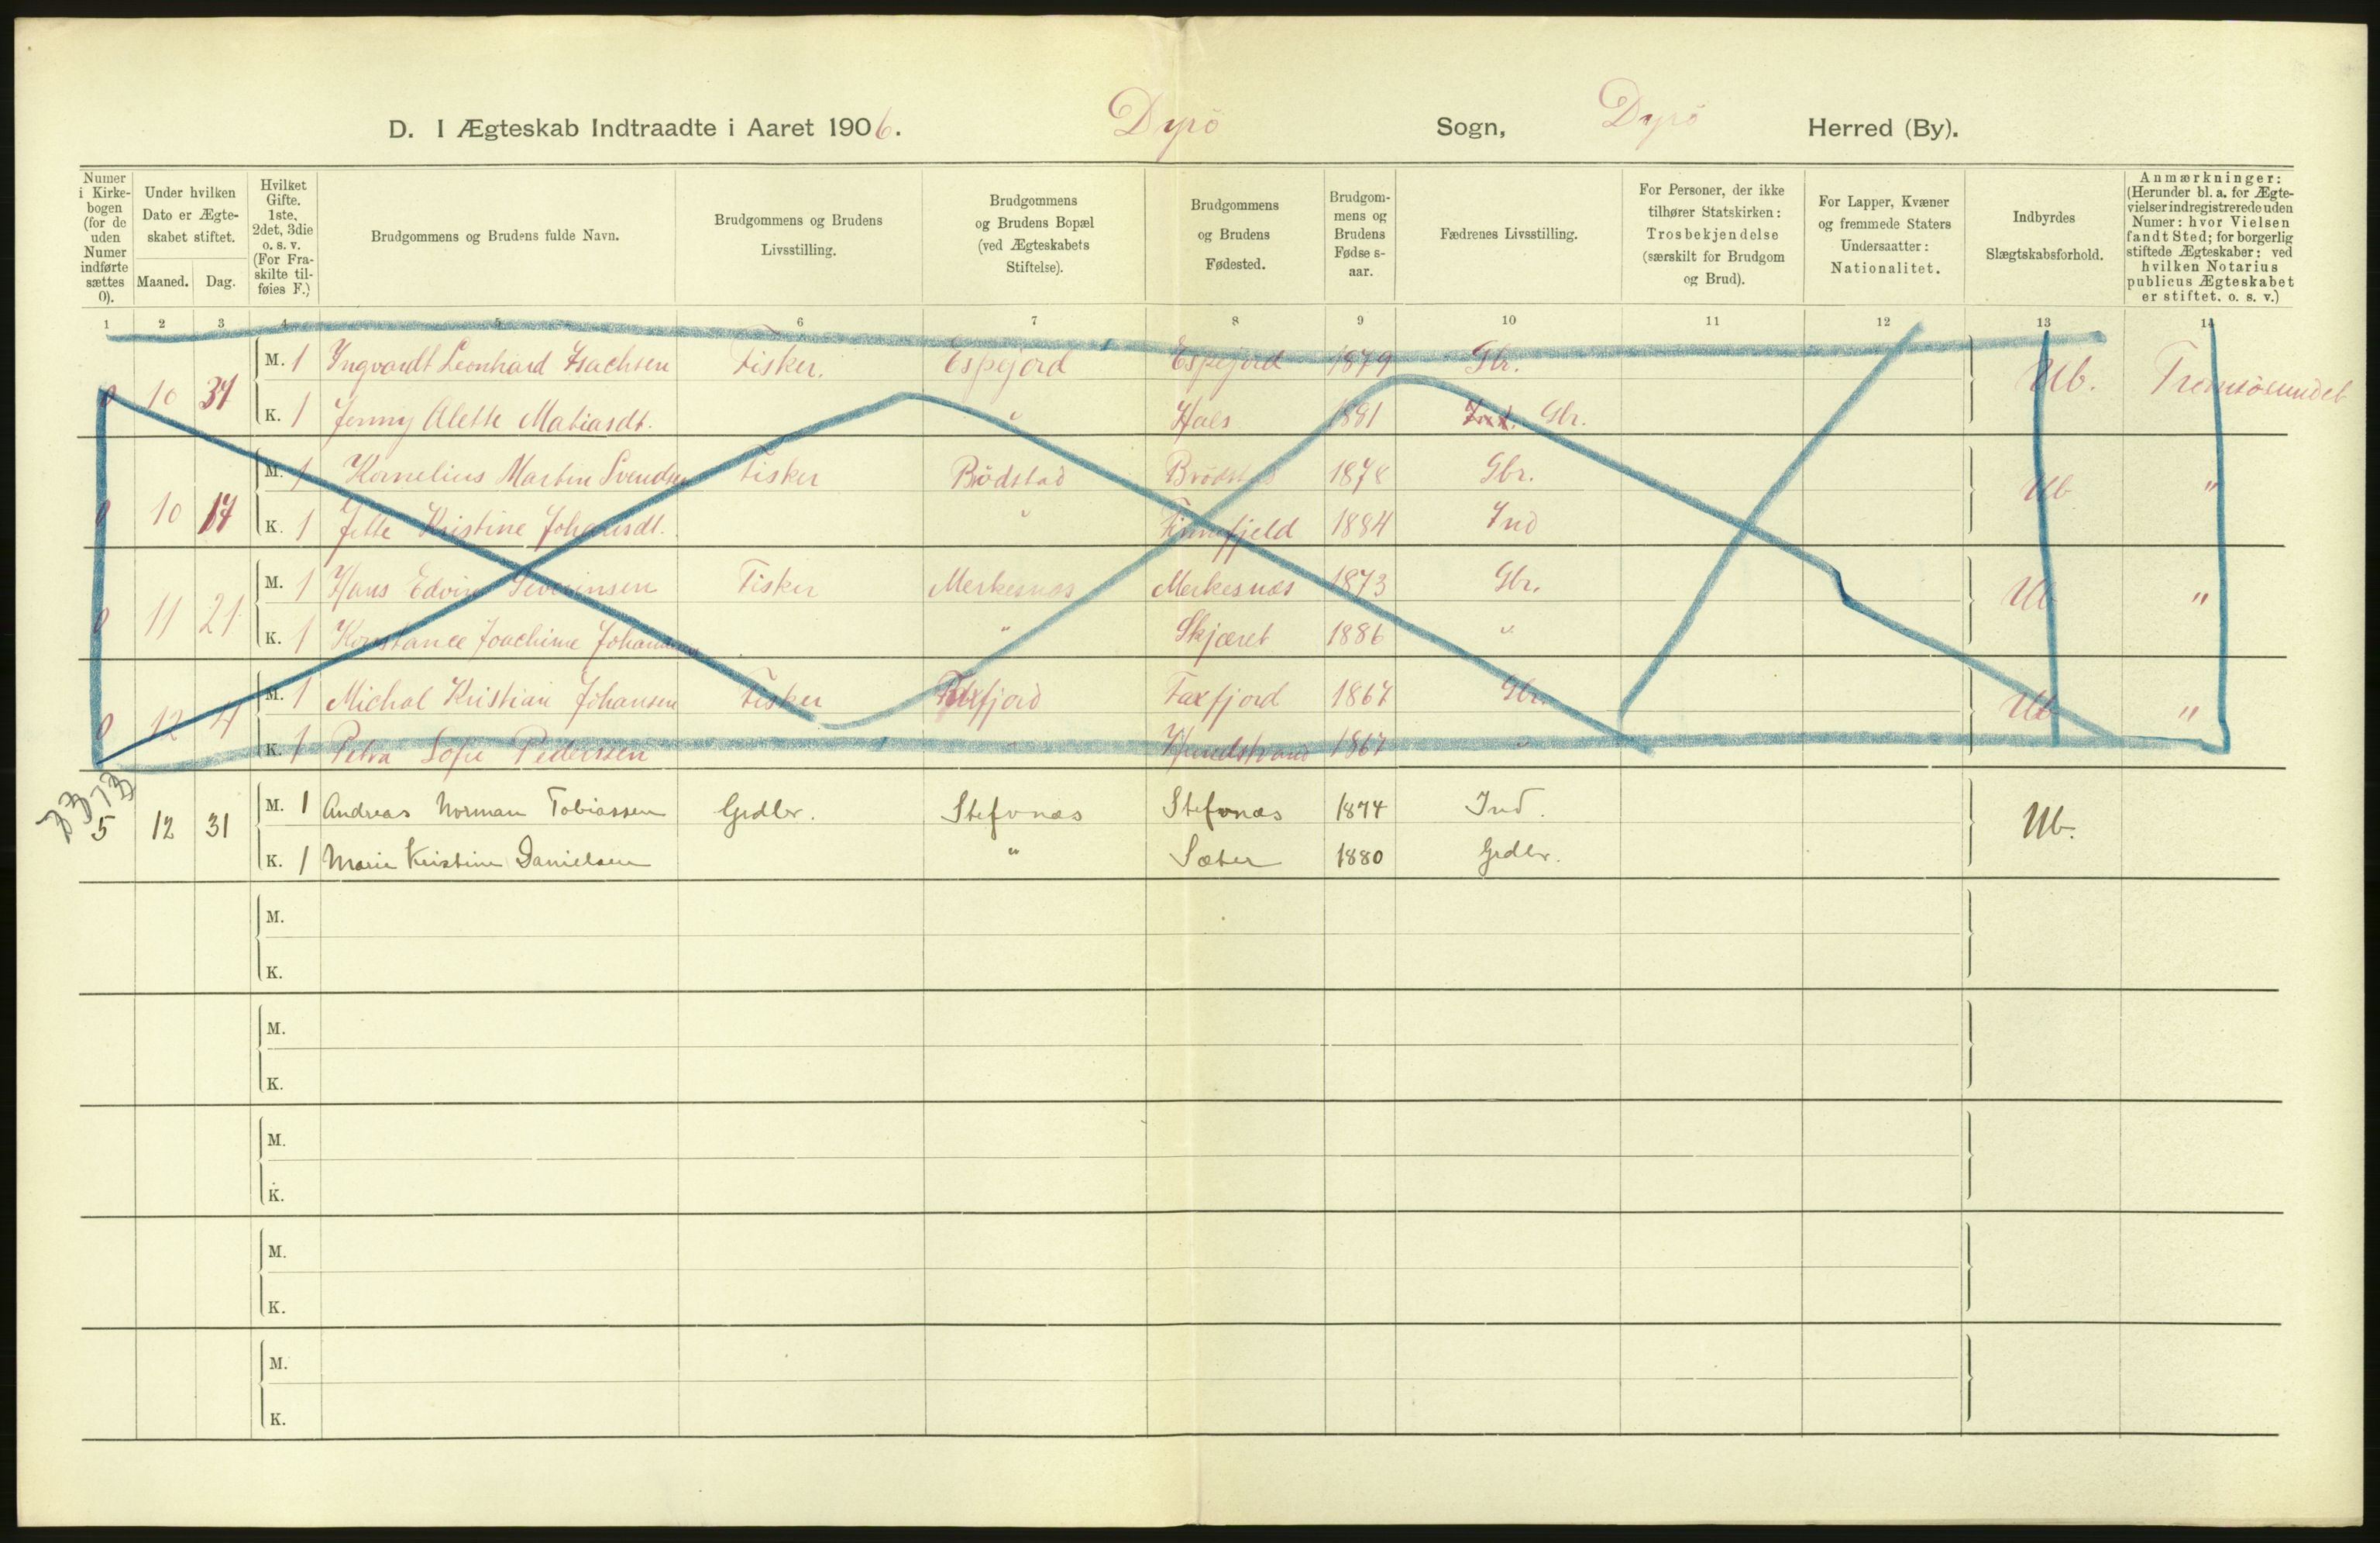 D. I Ægteskab Indtraadte i Aaret 1906. Dyrö Sogn, Dyrö Herred (By).
Numer i Kirkebogen (for de uden Numer indførte sættes 0).
Under hvilken Dato er Ægteskabet stiftet.
Maaned. Dag.
Hvilket Gifte. 1ste, 2det, 3die o. s. v. (For Fraskilte tilføies F.)
Brudgommens og Brudens fulde Navn.
Brudgommens og Brudens Livsstilling.
Brudgommens og Brudens Bopæl (ved Ægteskabets Stiftelse).
Brudgommens og Brudens Fødested.
Brudgommens og Brudens Fødselsaar.
Fædrenes Livsstilling.
For Personer, der ikke tilhører Statskirken: Trosbekjendelse (særskilt for Brudgom og Brud).
For Lapper, Kvæner og fremmede Staters Undersaatter: Nationalitet.
Indbyrdes Slægtskabsforhold.
Anmærkninger: (Herunder bl. a. for Ægtevielser indregistrerede uden Numer: hvor Vielsen fandt Sted; for borgerlig stiftede Ægteskaber: ved hvilken Notarius publicus Ægteskabet er stiftet. o. s. v.)
1 2 3 4 5 6 7 8 9 10 11 12 13 14
M. 1 Ingvardt Leonhard Isachsen Fisker. Espejord Espejord 1879 Gbr.
0 10 31 Ub. Tromsösundet
K. 1 Jenny Alette Matiasdt. " Hals 1881 Ind. Gbr.
M. 1 Kornelius Martin Svendsen Fisker Brödstad Brödstad 1878 Gbr.
0 10 17 Ub "
K. 1 Jette Kristine Johansdt. " Finnfjeld 1884 Ind
M. 1 Hans Edvin Severinsen Fisker Merkesnæs Merkesnæs 1873 Gbr.
0 11 21 Ub "
K. 1 Konstance Joachime " Skjæret 1886 "
M. 1 Michal Kristian Johansen Fisker Faxfjord Faxfjord 1867 Gbr.
0 12 4 Ub "
K. 1 Petra Sofie Pederssen " Hundstrand 1867 "
M. 1 Andreas Norman Tobiassen Grdbr. Stefonæs Stefonæs 1874 Ind.
5 12 31 Ub.
K. 1 Marie Kristine Danielsen " Sæter 1880 Grdbr.
M.
K.
M.
K.
M.
K.
M.
K.
M.
K.